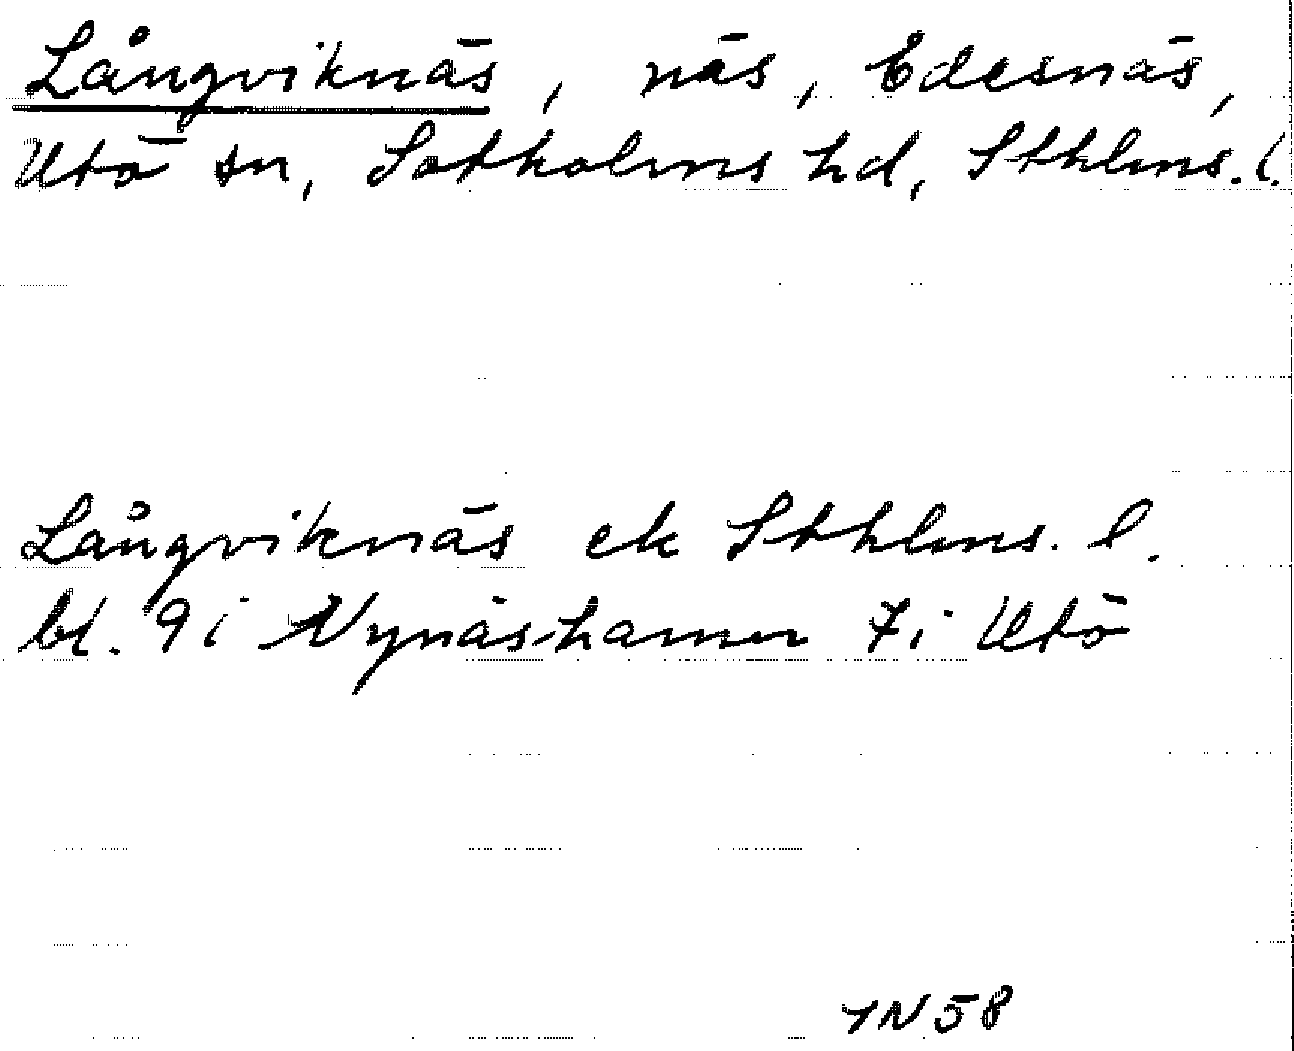 Långviknäs, näs, Edesnäs,
Utö sn, Sotholms hd, Sthlms. l.
Långviknäs ek Sthlms. l.
bl. 9 i Nynäshamn 7 i Utö
IN 58